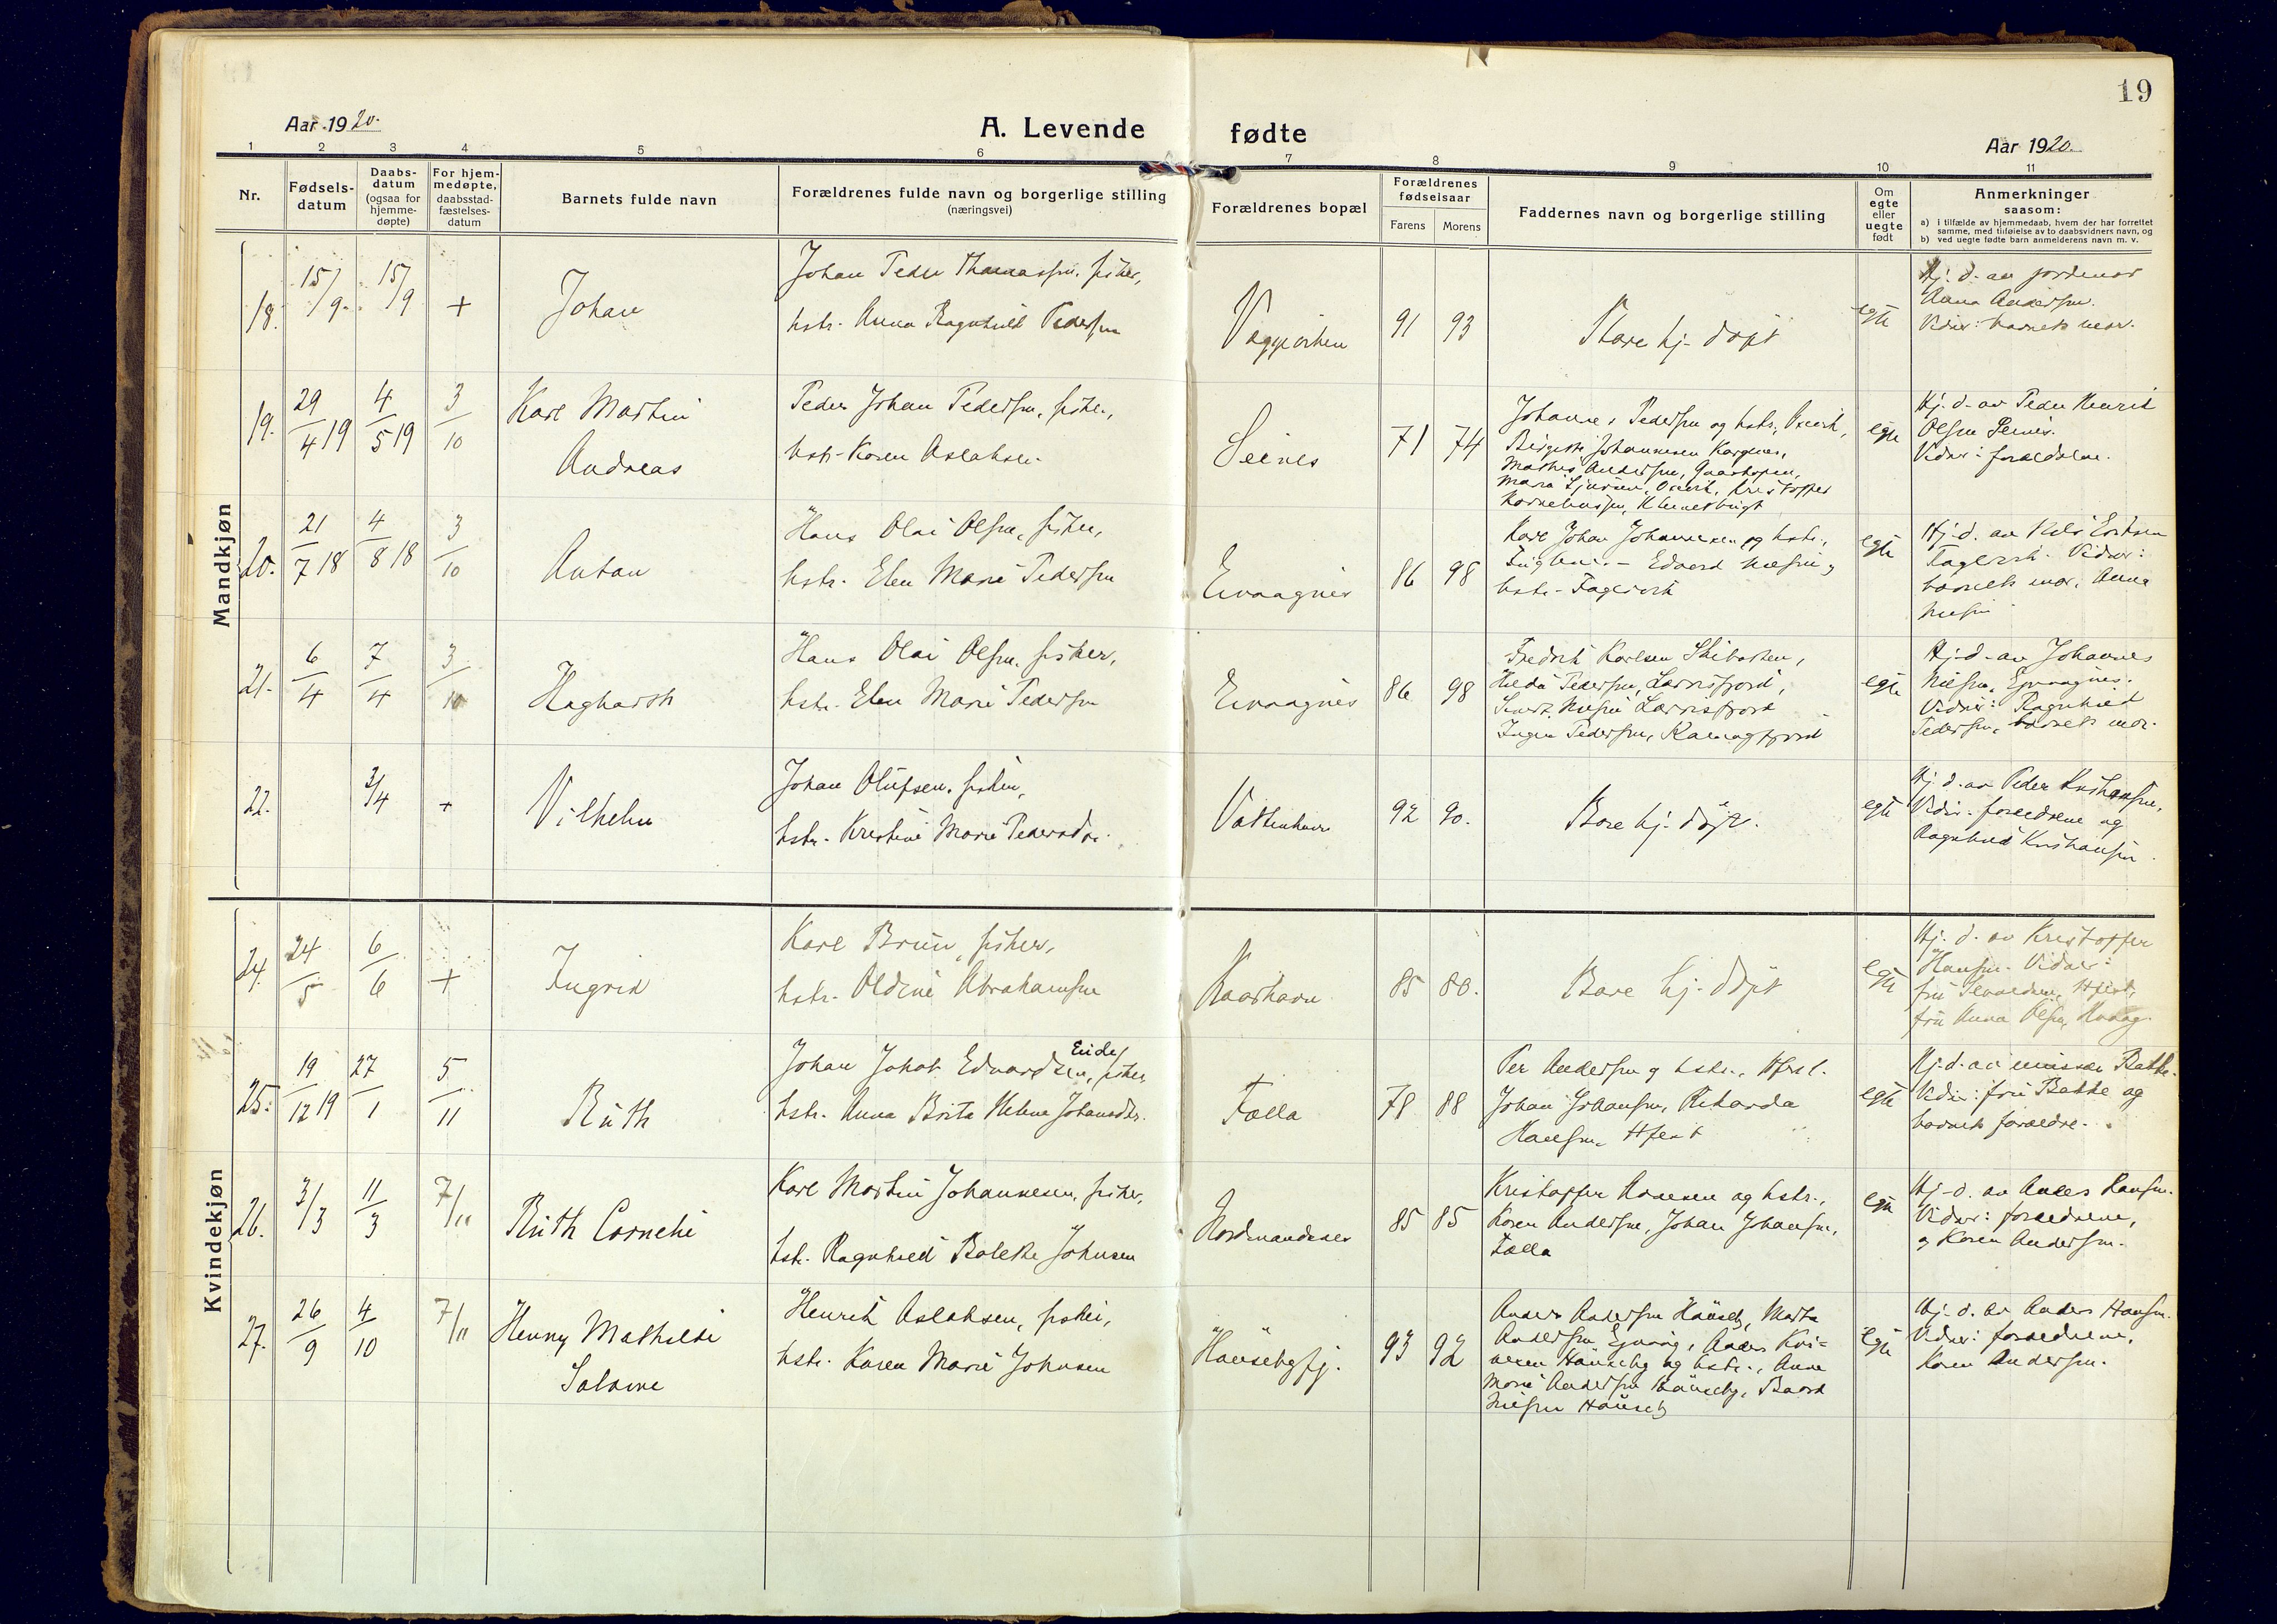 19
Aar 1920.
A. Levende fødte
Aar 1920.
1 2 3 4 5 6 7 8 9 10 11
Nr.
Fødsels-
datum
Daabs-
datum
(ogsaa for
hjemme-
døpte)
For hjem-
medøpte,
daabsstad-
fæstelses-
datum
Barnets fulde navn
Forældrenes fulde navn og borgerlige stilling
(næringsvei)
Forældrenes bopæl
Forældrenes
fødselsaar
Farens Morens
Faddernes navn og borgerlige stilling
Om
egte
eller
uegte
født
Anmerkninger
saasom:
a) i tilfælde av hjemmedaab, hvem der har forrettet
samme, med tilføielse av to daabsvidners navn, og
b) ved uegte fødte barn anmelderens navn m. v.
Mandkjøn
18. 15/9. 15/9 + Johan
Johan Peder Thomassen, fisker,
hstr. Anna Ragnhild Pedersen
91 93
Bare hj. døpt
egte
Hj. d. av jordmor
Anna Andersen.
Vidner: barnets mor.
19. 29/4 19 4/5 19 3/10
Karl Martin
Andreas
Peder Johan Pedersen, fisker,
hstr. Karen Aslaksen.
Seines
71 74
Johannes Pedersen og hstr.,
Johannesen
Andersen,
Kristoffer
egte
Hj. d. av Peder Henrik
Olsen Seines.
Vidner: forældrene.
20. 21/7 18 4/8 18 3/10
Anton
Hans Olai Olsen, fisker,
hstr. Elen Marie Pedersen
86 98
Karl Johan Johannesen og hstr.,
Edvard Nilsen og
hstr. Fagervik
egte
Hj. d. av Nils Eriksen
Fagervik. Vidner:
barnets mor, Anna
Nilsen
21. 6/4 7/4 3/10
Hagharth
Hans Olai Olsen, fisker,
hstr. Elen Marie Pedersen
86 98
Fredrik Karlsen
Hilda Pedersen, Lærrisfjord,
Nilsen Lærrisfjord
Inga Pedersen,
egte
Hj. d. av Johannes
Nilsen,
Vidner: Ragnhild
Pedersen, barnets mor.
22. 3/4 + Vilhelm
Johan Olufsen, fisker,
hstr. Kristine Marie Pedersdtr.
92 90.
Bare hj. døpt.
egte
Hj. d. av Peder Kristiansen,
Vidner: forældrene og
Ragnhild Kristiansen.
Kvindekjøn
24. 24/5 6/6 + Ingrid
Karl Bruun, fisker,
hstr. Oldine Abrahamsen
Kaarhavn
85 80.
Bare hj. døpt
egte
Hj. d. av Kristoffer
Hansen. Vidner:
fru
fru Anna Olsen,
25. 19/12 19 27/1 5/11
Ruth
Johan Jakob Edvardsen, Eide, fisker
hstr. Anna Brita Helene Johansdtr.
Fælla
78 88
Per Andersen og hstr.,
Johan Johansen, Rikarda
Hansen
egte
Hj. d. av Bakke.
Vidner: fru Bakke og
barnets forældre.
26. 3/3 11/3 7/11
Ruth Corneli
Karl Martin Johannesen, fisker,
hstr. Ragnhild Bolette Johnsen
Nordmandsnes
85 85
Kristoffer Hansen og hstr.,
Karen Andersen, Johan Johansen,
Fælla
egte
Hj. d. av Anders Hansen.
Vidner: forældrene,
og Karen Andersen.
27. 26/9 4/10 7/11
Henny Mathilde
Salome
Henrik Aslaksen, fisker,
hstr. Karen Marie Johnsen
Hönsebyfj.
93 92
Anders Andersen Hönseby, Marta
Andersen
Hönseby og hstr., Anna
Marie Andersen Hönseby,
Nilsen Hönseby
egte
Hj. d. av Anders Hansen.
Vidner: forældrene,
Karen Andersen.